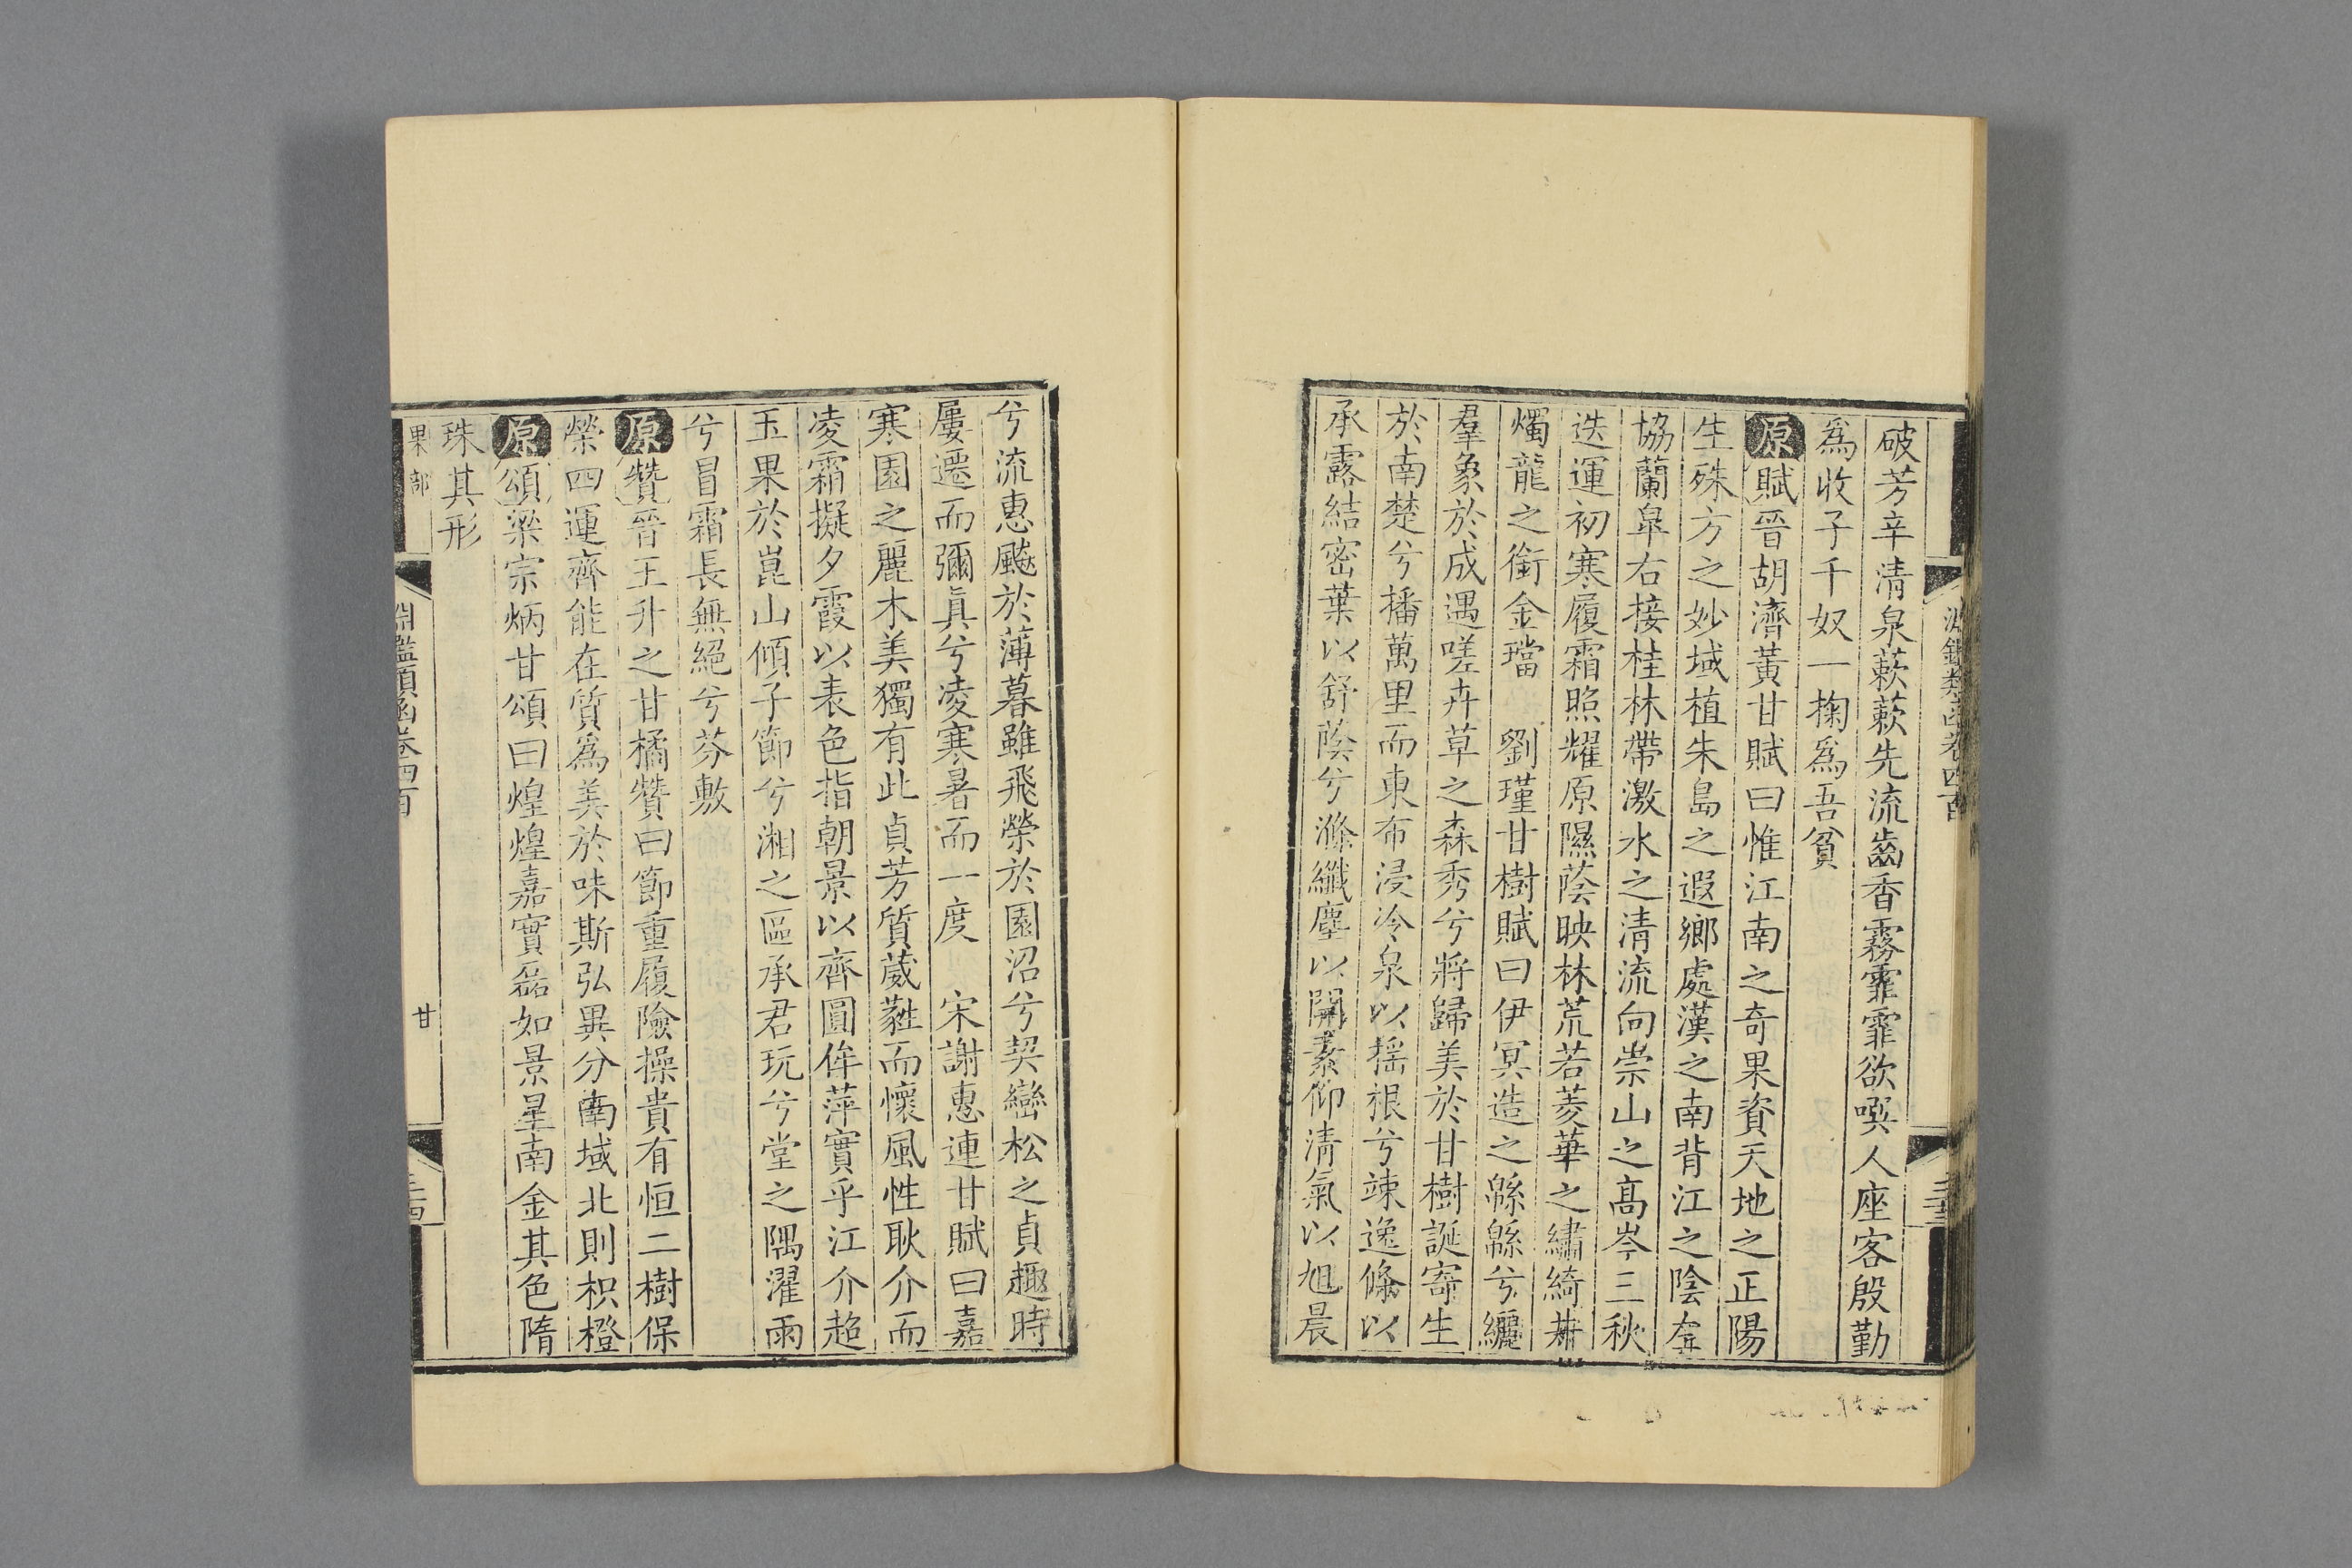 破芳辛清泉蔌蔌先流齒香霧霏霏欲噀人座客殷勤
爲收子千奴一掬爲吾貧
原賦晉胡濟黃甘賦曰惟江南之奇果資天地之正陽
生殊方之妙域植朱島之遐鄉處漢之南背江之陰左
協蘭皐右接桂林帶激水之清流向崇山之高岑三秋
迭運初寒履霜照耀原隰蔭映林荒若菱華之繡綺
燭龍之銜金璫 劉瑾甘樹賦曰伊冥造之緜緜兮纚
羣象於成遇嗟卉草之森秀兮將歸美於甘樹誕寄生
於南楚兮播萬里而東布浸冷泉以搖根兮竦逸條以
承露結密葉以舒蔭兮滌纖塵以開素仰清氣以旭晨
兮流惠飈於薄暮雖飛榮於園沼兮契巒松之貞趣時
屢遷而彌眞兮凌寒暑而一度 宋謝惠連甘賦曰嘉
寒園之麗木美獨有此貞芳質葳蕤而懷風性耿介而
凌霜擬夕霞以表色指朝景以齊圓侔萍實乎江介超
玉果於崑山傾子節兮湘之區承君玩兮堂之隅濯雨
兮冒霜長無絕兮芬敷
原贊晉王升之甘橘贊曰節重履險操貴有恒二樹保
榮四運齊能在質爲美於味斯弘異分南域北則枳橙
原頌梁宗炳甘頌曰煌煌嘉實磊如景星南金其色隋
珠其形
果部 淵鑑類函卷四百 甘